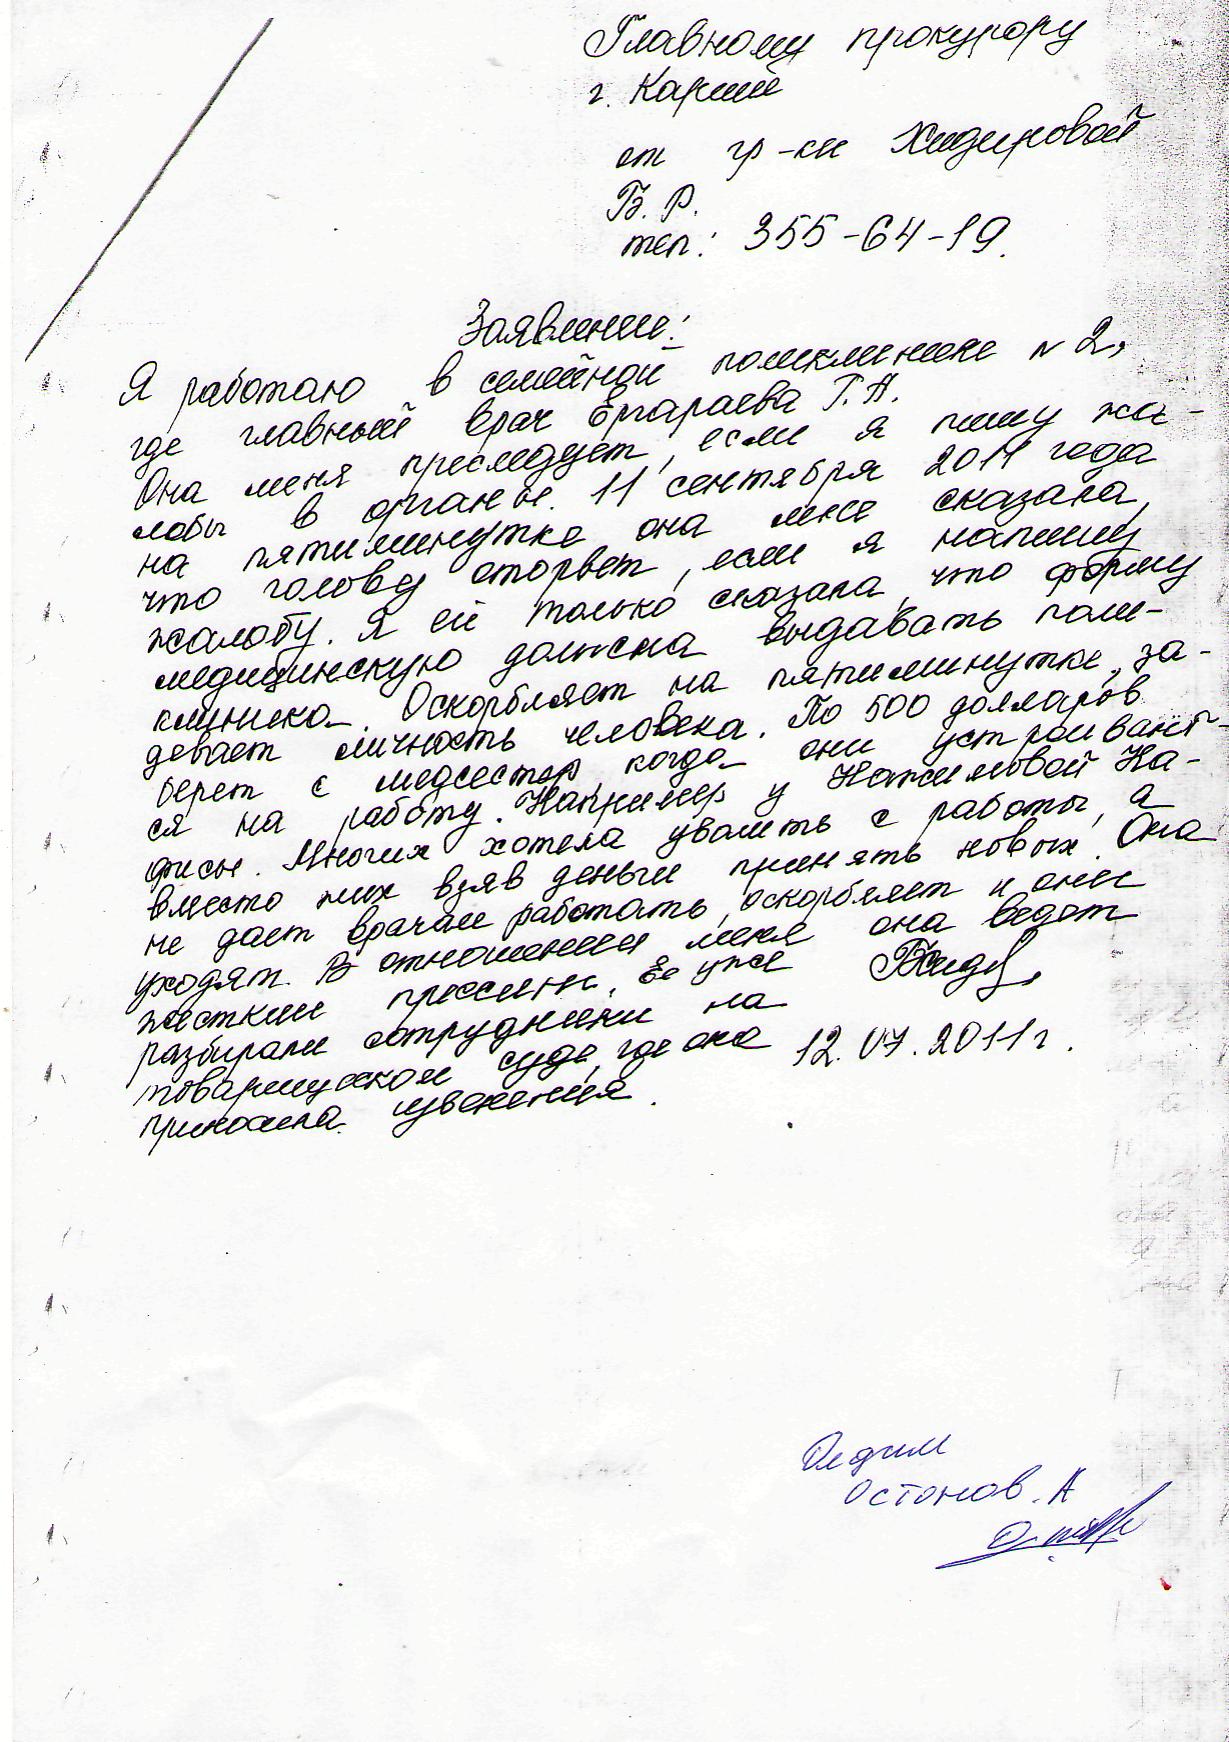 Главному прокурору
г. Карши
от гр-ки Хидировой
В. Р.
тел: 355-64-19.
Заявление:
Я работаю в семейной поликлинике № 2,
где главный врач Ергараева Г. А.
Она меня преследует, если я пишу жа-
лобы в органы. 11 сентября 2011 года
на пятиминутке она мне сказала,
что голову оторвет, если я напишу
жалобу. Я ей только сказала, что форму
медицинскую должна выдавать поли-
клиника. Оскорбляет на пятиминутке, за-
девает личность человека. По 500 долларов
берет с медсестер, когда они устраивают-
ся на работу. Например у Нажимовой На-
фисы. Многих хотела уволить с работы, а
вместо них взяв деньги принять новых. Она
не дает врачам работать, оскорбляет и они
уходят. В отношении меня она ведет
жесткий прессинг. Ее уже
разбирали сотрудники на
товарищеском суде, где она 12.07.2011 г.
приносила извенения.
Олдим
Остонов. А